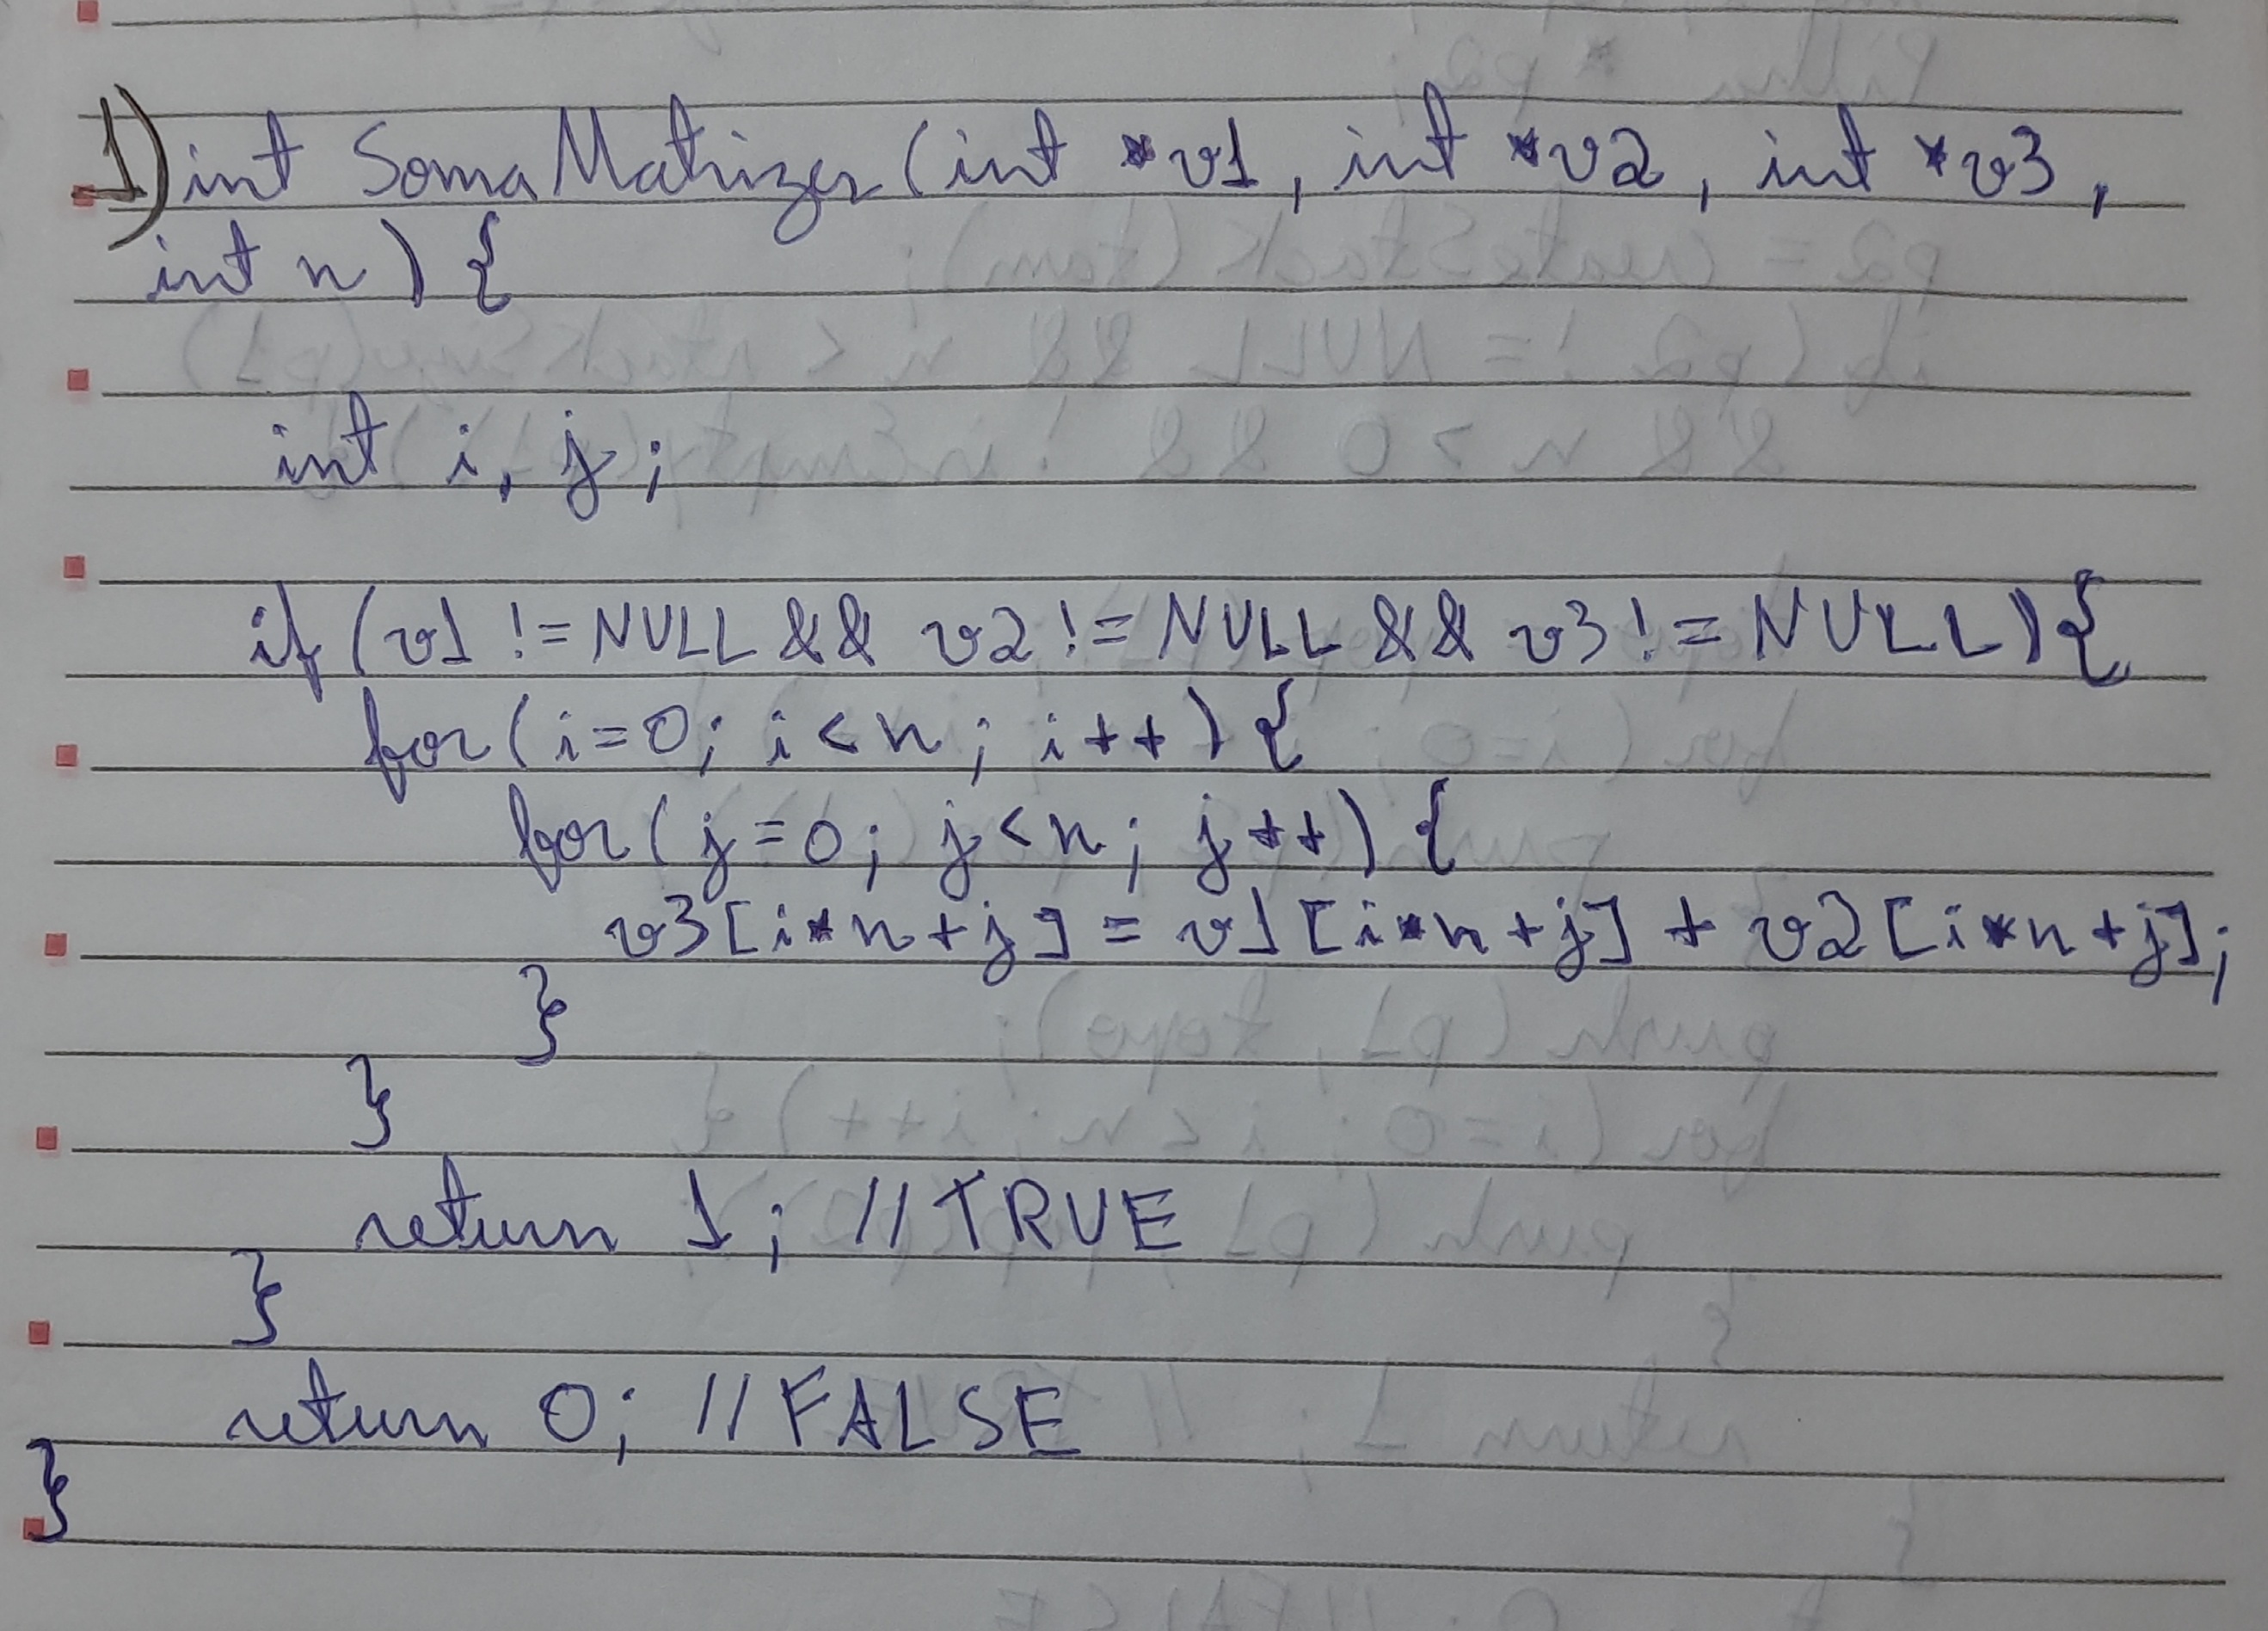 1) int SomaMatrizes (int *v1, int *v2, int *v3,
int n) {
int i, j;
if (v1 != NULL && v2 != NULL && v3 != NULL) {
for (i=0; i<n; i++) {
for (j=0; j<n; j++) {
v3[i*n+j] = v1[i*n+j] + v2[i*n+j];
}
}
return 1; //TRUE
}
return 0; //FALSE
}